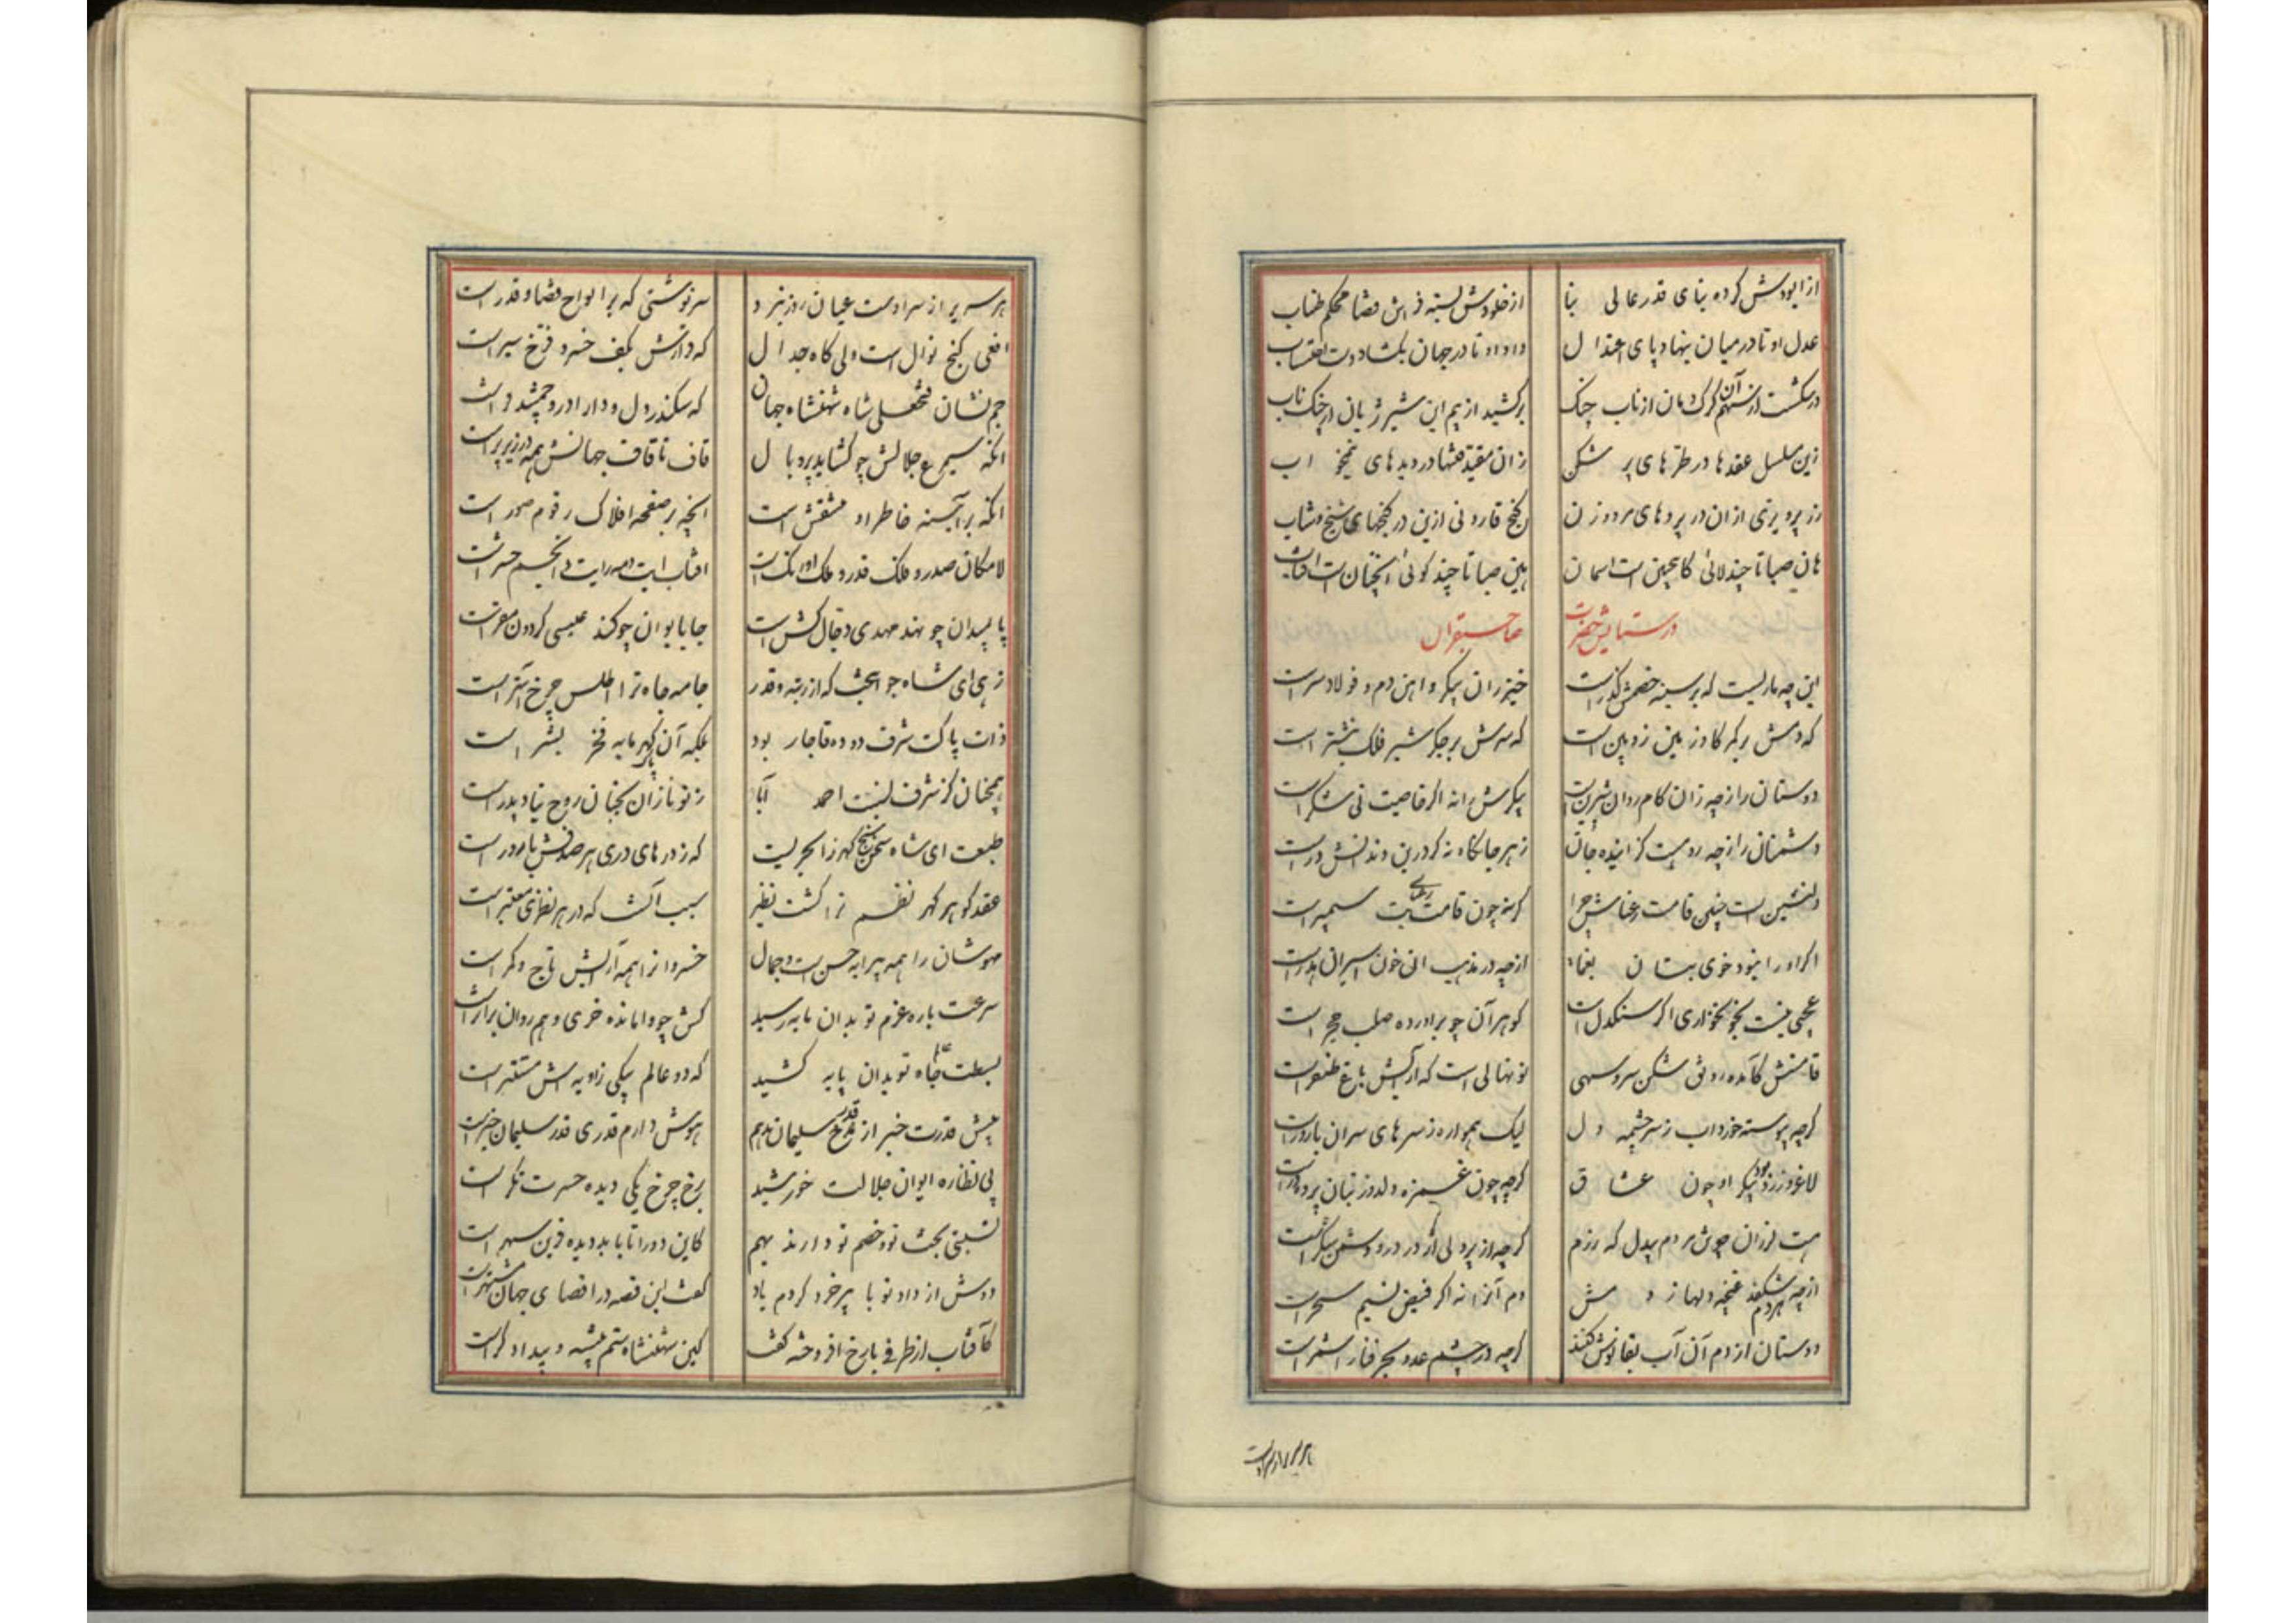 از ابودش کرده بنای قدر عالی بنا از خلودش بسته فراش قضا محکم طناب
عدل او تا در میان بنهاد پای اعتدال داد او تا در جهان بکشاد دست احتساب
درشکست از سهم آن کرک دمان از ناب چنک برکشید از بیم این شیر ژیان از چنک ناب
زین مسلسل عقدها در طرّهای پر شکن زان مقید فتنها در دیدهای نیمخواب
پرویزی از آن در پردهای کنج قارونی ازین در کنجهای
هان صبا تا چند لائی کاینچنین است اسمان هین صبا تا چند کوئی آنچنان است افتاب
در ستایش حضرت صاحبقران
این چه ماریست که بر سینه خصمش کذر است خیزران پیکر و اهن دم و فولاد سر است
که دمش بر کمر کاو زمین زوبین است که سرش بر جکر شیر فلک نیشتر است
دوستان را ز چه زان کام روان شیرین است پیکرش را نه اکر خاصیت نی شکر است
دشمنان را ز چه رو هست کزاینده جان زهر جانکاه نه کر در بن دندانش در است
دلنشین است چنین قامت رعناش چرا کرنه چون قامت رعنای بت سیمبر است
اکر او را نبود خوی بتان یغما از چه در مذهب ان خون اسیران هدر است
عجبی نیست بخونخواری اکر سنکدل است کوهر آن چو براورده صلب حجر است
قامتش کآمده رونق شکن سرو سهی نونهالی است که آرایش باغ ظفر است
کرچه پیوسته خورد اب ز سرچشمه دل لیک همواره ز سرهای سران بارور است
لاغر و زرد بود پیکر او چون عشاق کرچه چون غمزه دلدوز بتان پرده در است
هست لرزان چو مردم بیدل که رزم کرچه از پردلی اژدر در و دشمن شکر است
از چه هر دم شکفد غنچه دلها ز دمش دم آنرا نه اکر فیض نسیم سحر است
دوستان از دم آن آب بقا نوش کنند کرچه در چشم عدو بحر فنا را شمر است
هر سریر از سر اوست عیان روز نبرد سرنوشتی که بر الواح قضا و قدر است
افعی کنج نوال است ولی کاه جدال که قرارش بکف خسرو فرخ سیر است
جم نشان فتحعلی شاه شهنشاه جهان که سکندر دل و دارا در و جمشید فر است
آنکه سیمرغ جلالش چو کشاید پر و بال قاف تا قاف جهانش همه در زیر پر است
آنکه بر آیینه خاطر او منتقش است انچه بر صفحه افلاک رقوم صور است
لامکان صدر و فلک قدر و ملک اورنک است افتاب ایت و مه رایت و انجم حشر است
پا بمیدان چو نهد مهدی دجال کش است جا بایوان چو کند عیسی کردون مقر است
زهی ای شاه جوانبخت که از رتبه و قدر جامه جاه ترا اطلس چرخ آستر است
ذات پاکت شرف دوده قاجار بود بلکه آن کهر پاک مایه فخر بشر است
همچنان کز شرف نسبت احمد آبا ز تو نازان بجنان روح نیا و پدر است
طبعت ای شاه سخن سنج کهرزا بحریست که ز درهای دری هر صدفش بارور است
عقد کوهر کهر نظم ترا کشت نظیر سبب آنست که در هر نظری معتبر است
مهوشان را همه پیرایه حسن است و جمال خسروانرا همه آرایش تاج و کمر است
سرعت باره عزم تو بدان پایه رسید کش چو وامانده خری وهم روان بر اثر است
بسطت جاه تو بدان پایه کشید که دو عالم بیکی زاویه اش مستتر است
پیش قدرت خبر از قدر سلیمان ندهم هوش دارم قدری قدر سلیمان خبر است
پی نظاره ایوان جلالت خورشید برخ چرخ یکی دیده حسرت نکر است
نسبتی بخت تو و خصم تو دارند بهم کاین دو را تا بابد دیده قرین سهر است
دوش از داد تو با پیر خرد کردم یاد کفت این قصه در اقصای جهان مشتهر است
کآفتاب از طرفی با رخ افروخته کفت کین شهنشاه ستم پیشه و بیدادکر است